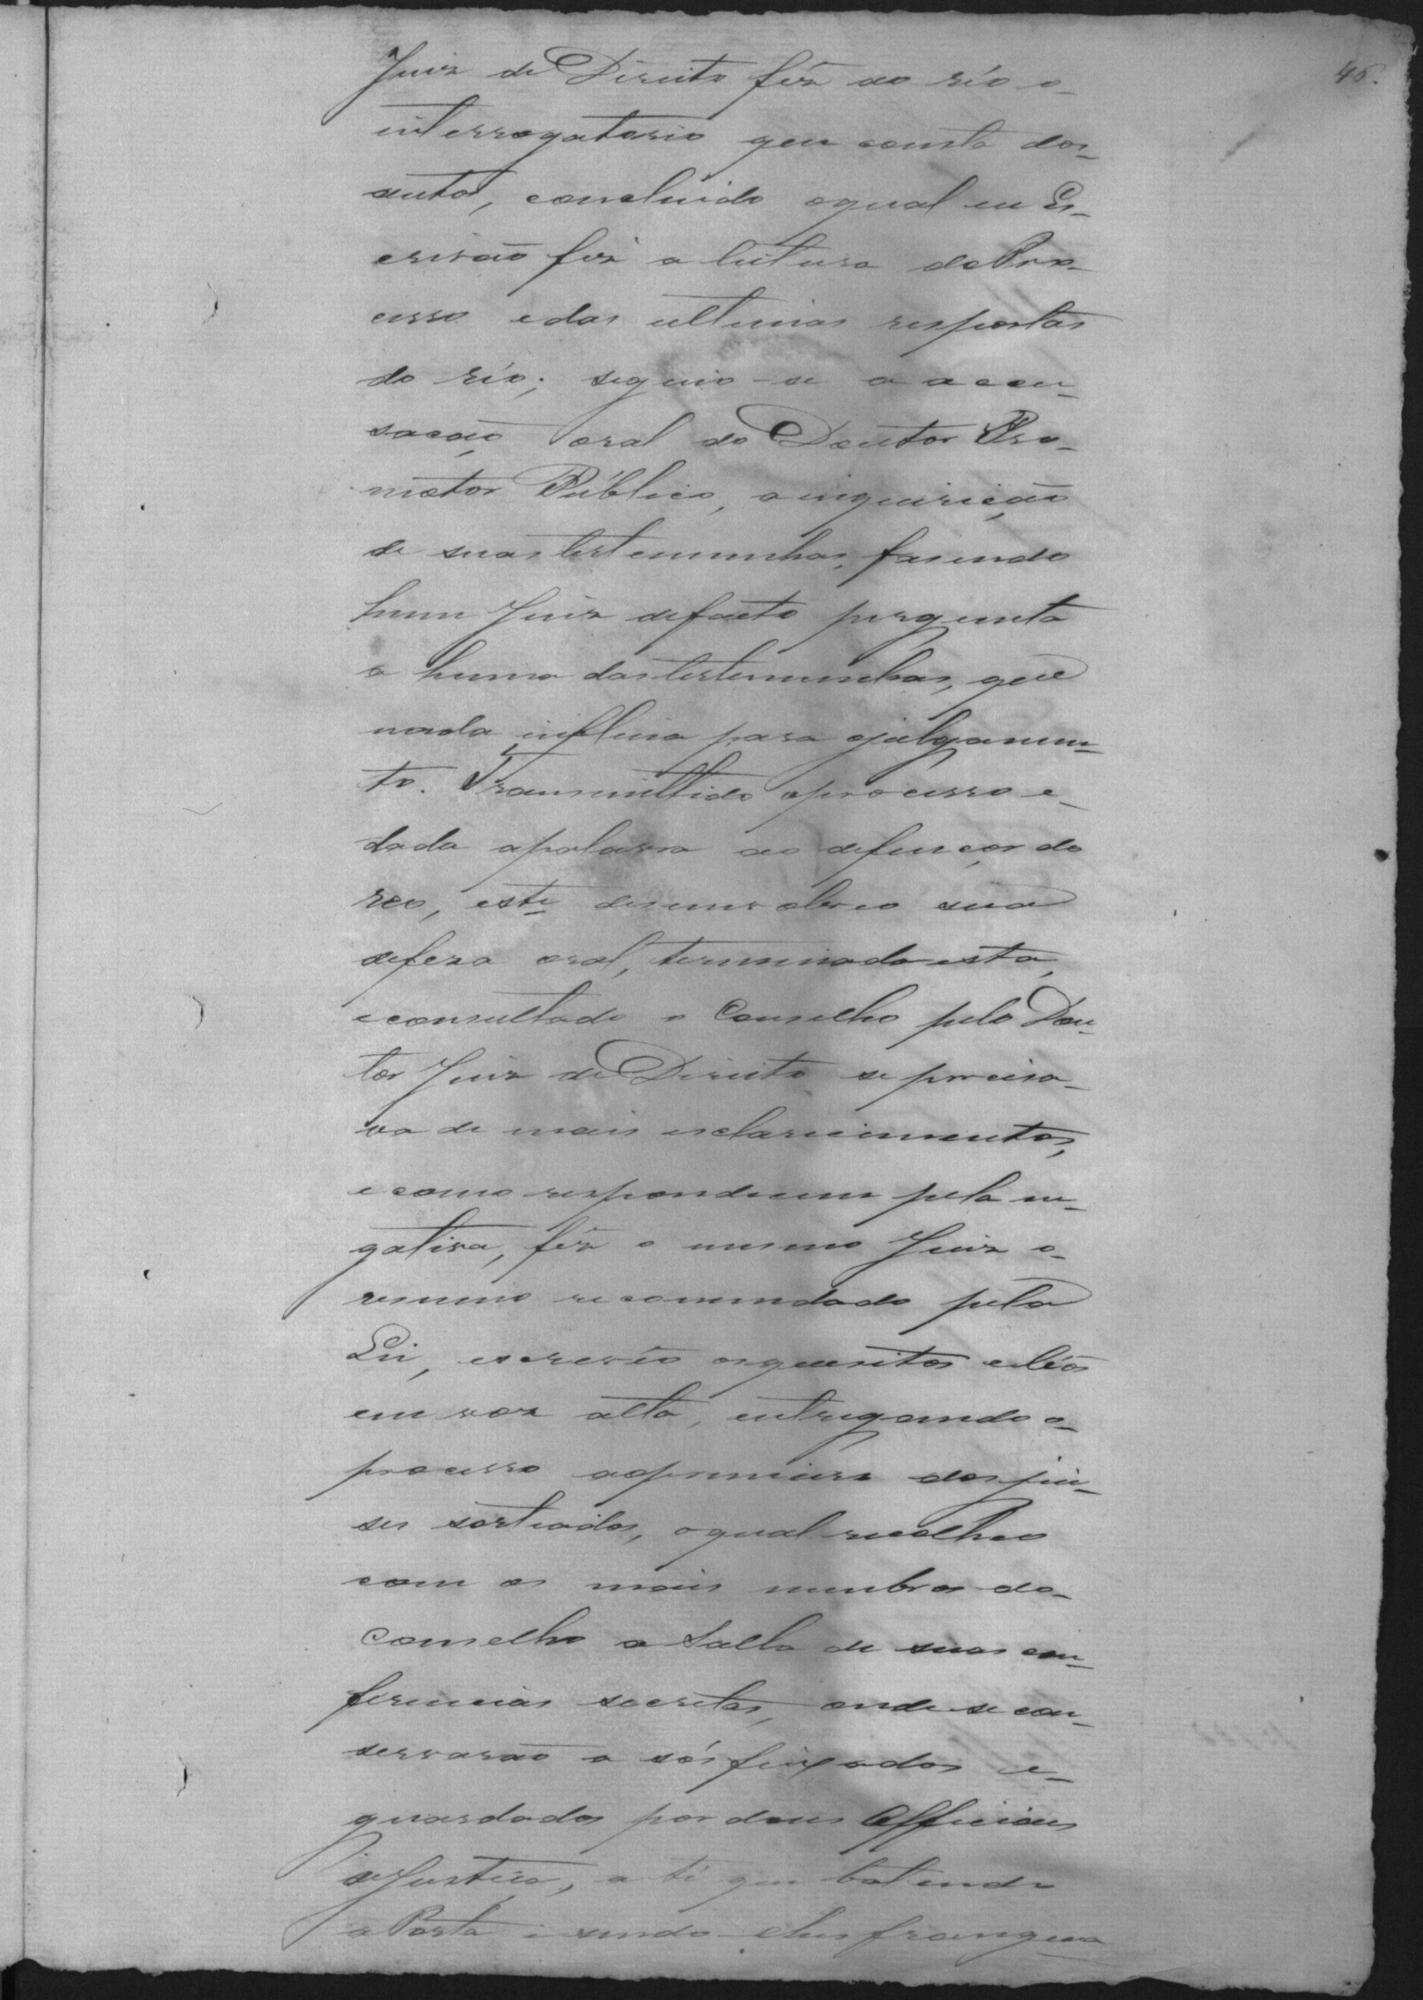 46.
Juiz de Direito fêz ao réo o
interrogatorio que consta dos
autos, concluido oqual eu Es-
crivão fiz a leitura do Pro-
cesso e das ultimas respostas
do réo; seguio-se a accu-
sação oral do Doutor Pro-
motor Público, a inquirição
de suas testemunhas, fasendo
hum Juiz defacto pergunta
a huma das testemunhas, que
nada influia para ojulgamen-
to. Transmittido oprocesso e
dada apalavra ao defençor do
reo, este desenvolveo sua
defeza oral, terminada esta,
econsultado o Conselho pelo Dou-
tor Juiz de Direito se precisa-
va de mais esclarecimentos,
ecomo responderem pela ne-
gativa, fêz o mesmo Juiz o
resumo recomendado pela
Lei, escrevêo osquesitos e lêos
em voz alta, entregando o
processo aoprimeiro dos jui-
ses sorteados, oqual recolheo
com os mais membros do
Conselho a Salla de suas con-
ferencias secretas, onde se con-
servarão a sós fixados e
guardados por dous Officiaes
deJustiça, a té que batendo
a Porta e sendo-lhes franquea